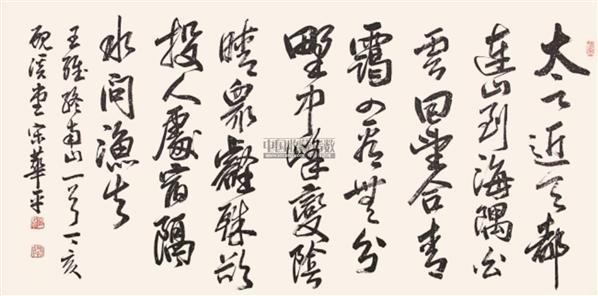 太乙近天都
連山到海隅白
雲回望合青
靄入看無分
野中峰變陰
晴衆壑殊欲
投人處宿隔
水問漁夫
王維終南山一首丁亥
硯溪堂宋華平